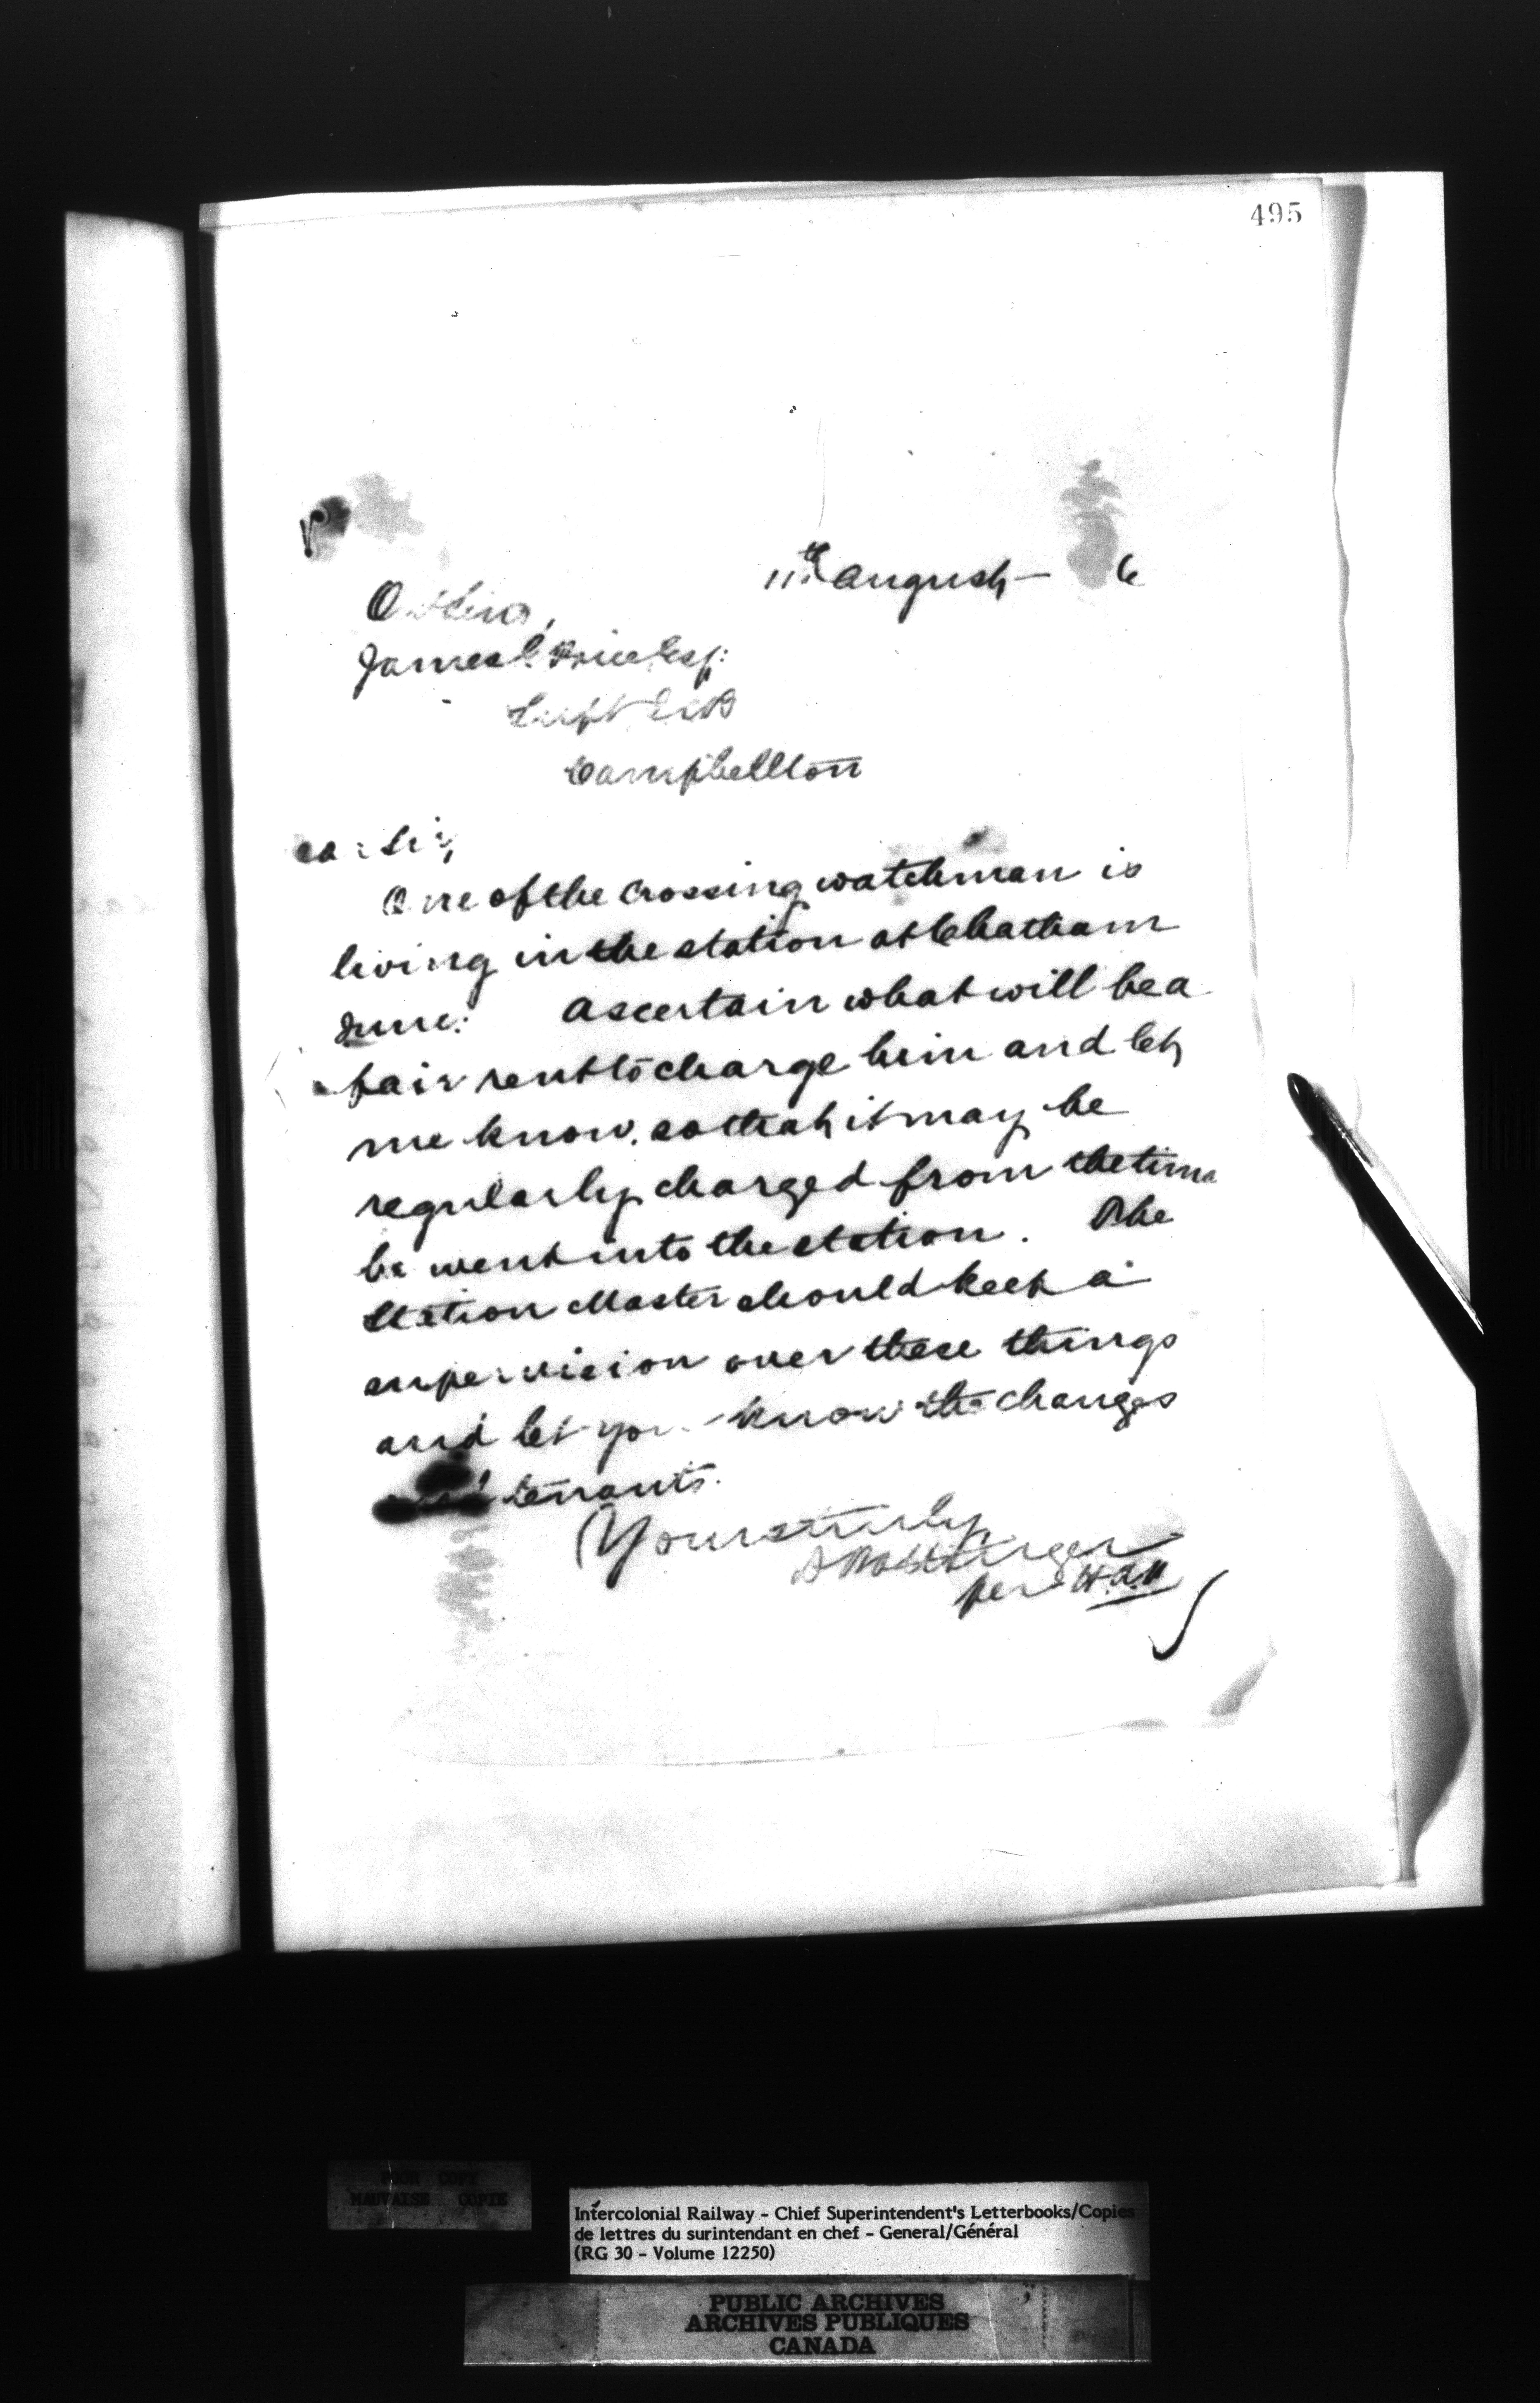 495
11th August 6
James Price Esq:
Supt
Campbellton
Sir,
One of the crossing watchman is
living in the station at Chatham
Junc: Ascertain what will be a
fair rent to charge him and let
me know, so that it may be
regularly charged from the time
he went into the station. The
Station Master should keep a
supervision over these things
and let you know the changes
tenants.
Yours truly
D Pottinger
per
POOR COPY
MAUVAISE COPIE
Intercolonial Railway - Chief Superintendent's Letterbooks/Copies
de lettres du surintendant en chef - General/Général
(RG 30 - Volume 12250)
PUBLIC ARCHIVES
ARCHIVES PUBLIQUES
CANADA